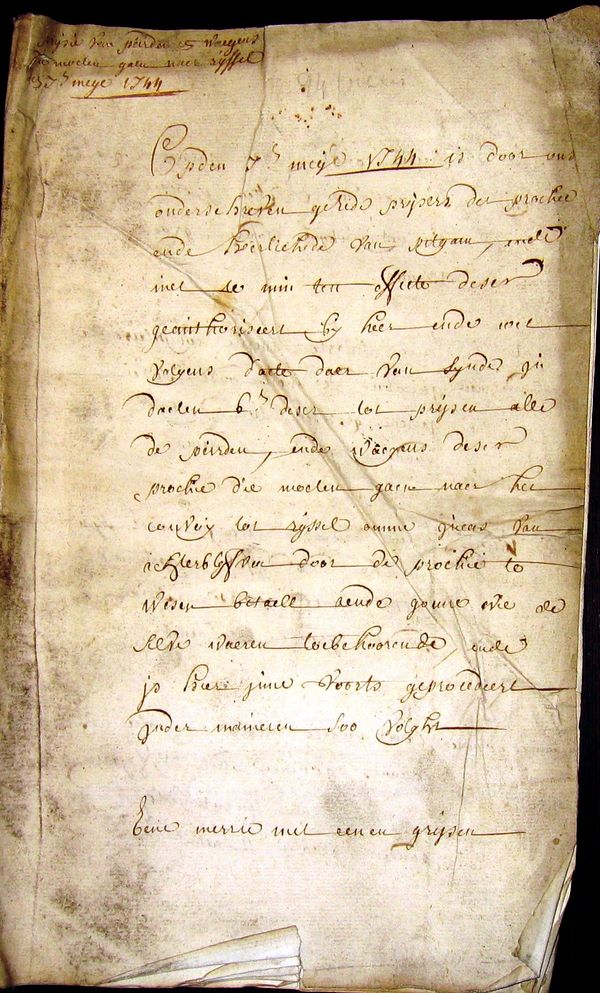 Prijsie van peirden en waegens
moeten gaen naer ryssel
7en meye 1744
Opden 7en meije 1744 is door ons
onderschreven gesede prijsers der prochie
ende heerlichede van pitgam, ende
met te min ten offitie deser
geauthoriseert by heer ende wet
volgens d'acte daer van synde in
daeten 6en deser tot prijsen alle
de peirden, ende waegens deser
prochie die moeten gaene naer het
convoy tot ryssel omme incas van
achterblyfven door de prochie te
wesen betaelt aende gonne die de
selve waeren toebehoorende, ende
is hier inne voorts geprocedeert
inder manieren soo volght
Eene merrie met eenen grijsen